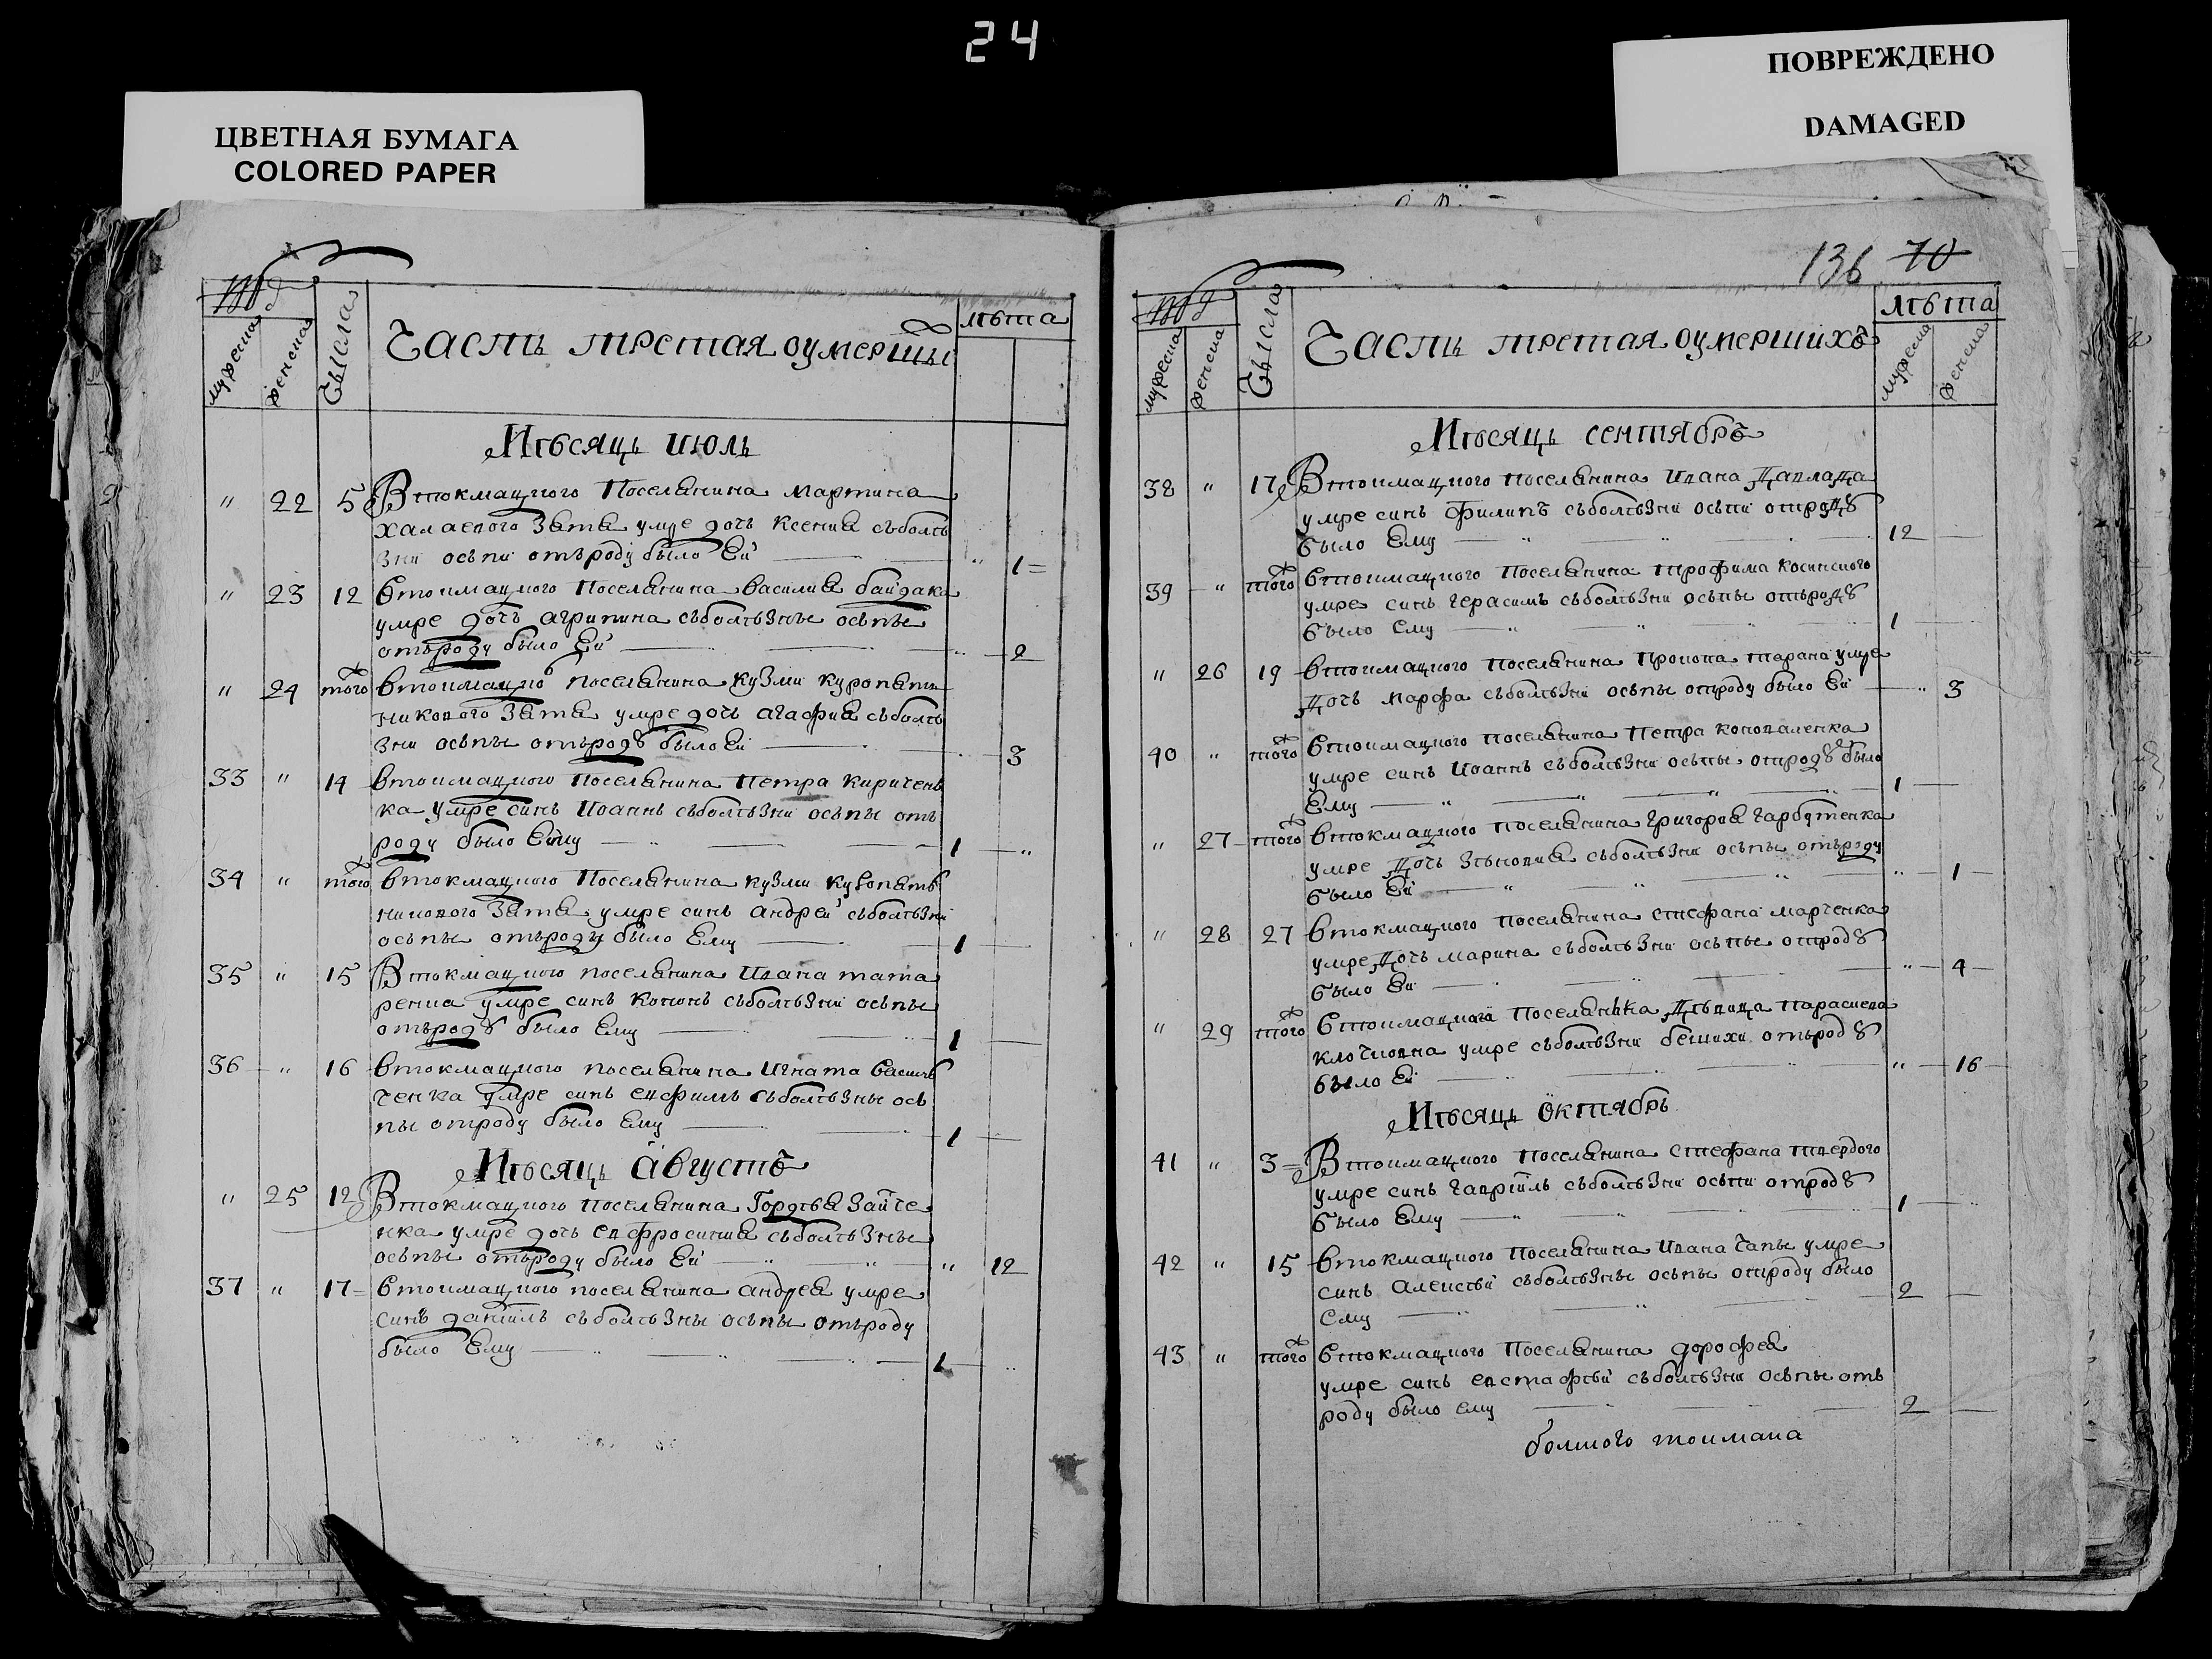 24
ЦВЕТНАЯ БУМАГА
COLORED PAPER
ПОВРЕЖДЕНО
DAMAGED
мужеска
женска
Числа
Часть третая оумершы
лѣта
Мѣсяць июль
" 22 5 Втокмацкого Поселянина Мартина
халаевого Зятя умре дочь Ксения съболѣ
зни осьпи отъроду было Ей " 1
" 23 12 втокмацкого Поселянина василия байдака
умре дочь агрипина съболѣзны осьпы
отъроду было Ей 2
" 24 того втокмацко поселянина кузми куропатъ
никового Зятя умре дочь агафия съболѣ
зни осьпы отъроду было Ей 3
33 " 14 втокмацкого Поселянина Петра Кириченъ
ка умре синь Иоаннъ съболѣзни осьпы отъ
роду было Ему 1 "
34 " того втокмацкого Поселянина кузми куропатъ
никового Зятя умре синь андрей съболѣзни
осьпы отъроду было Ему 1
35 " 15 Втокмацкого поселянина Ивана тата
ренка умре синь Кононъ съболѣзни осьпы
отъроду было Ему 1
36 " 16 втокмацкого поселянина Игната василъ
ченка умре синь евфимъ съболѣзны ось
пы отроду было Ему 1
Мѣсяць августъ
" 25 12 Втокмацкого поселянина Гордѣя Зайче
нка умре дочь Евфросиния съболѣзны
осьпы отъроду было Ей " 12
37 " 17 втокмацкого поселянина андрея умре
Синъ даніилъ съболѣзны осьпы отъроду
было Ему 1
136 70
мужеска
женска
Числа
Часть третая оумершихъ
лѣта
мужеска
женска
Мѣсяць сентябръ
38 " 17 Втокмацкого поселянина Ивана
умре синь филипъ съболѣзни осьпи отроду
было Ему 12
39 " того втокмацкого Поселянина трофима косинского
умре синь герасимъ съболѣзни осьпы отъроду
было Ему 1
" 26 19 втокмацкого поселянина Прокопа тарана умре
дочь марфа съболѣзни осьпы отроду было Ей " 3
40 " того втокмацкого поселянина Петра коноваленка
умре синь Иоаннъ съболѣзни осьпы отроду было
Ему 1
" 27 того втокмацкого поселянина григория гарбутенка
умре дочь Зѣновия съболѣзни осьпы отъроду
было Ей " 1
" 28 27 втокмацкого поселянина стефана марченка
умре дочь марина съболѣзни осьпы отроду
было Ей " 4
" 29 того втокмацкого Поселянъка дѣвица Параскева
клочковна умре съболѣзни бешихи отъроду
было Ей " 16
Мѣсяць октябрь
41 " 3 Втокмацкого поселянина Стефана твердого
умре синь гавріилъ съболѣзни осьпи отроду
было Ему 1
42 " 15 втокмацкого Поселянина Ивана Чапы умре
синь Алексѣй съболѣзны осьпы отроду было
Ему 2
43 " того втокмацкого Поселянина дорофея
умре синь евстафѣй съболѣзни осьпы отъ
роду было ему 2
болшого токмака